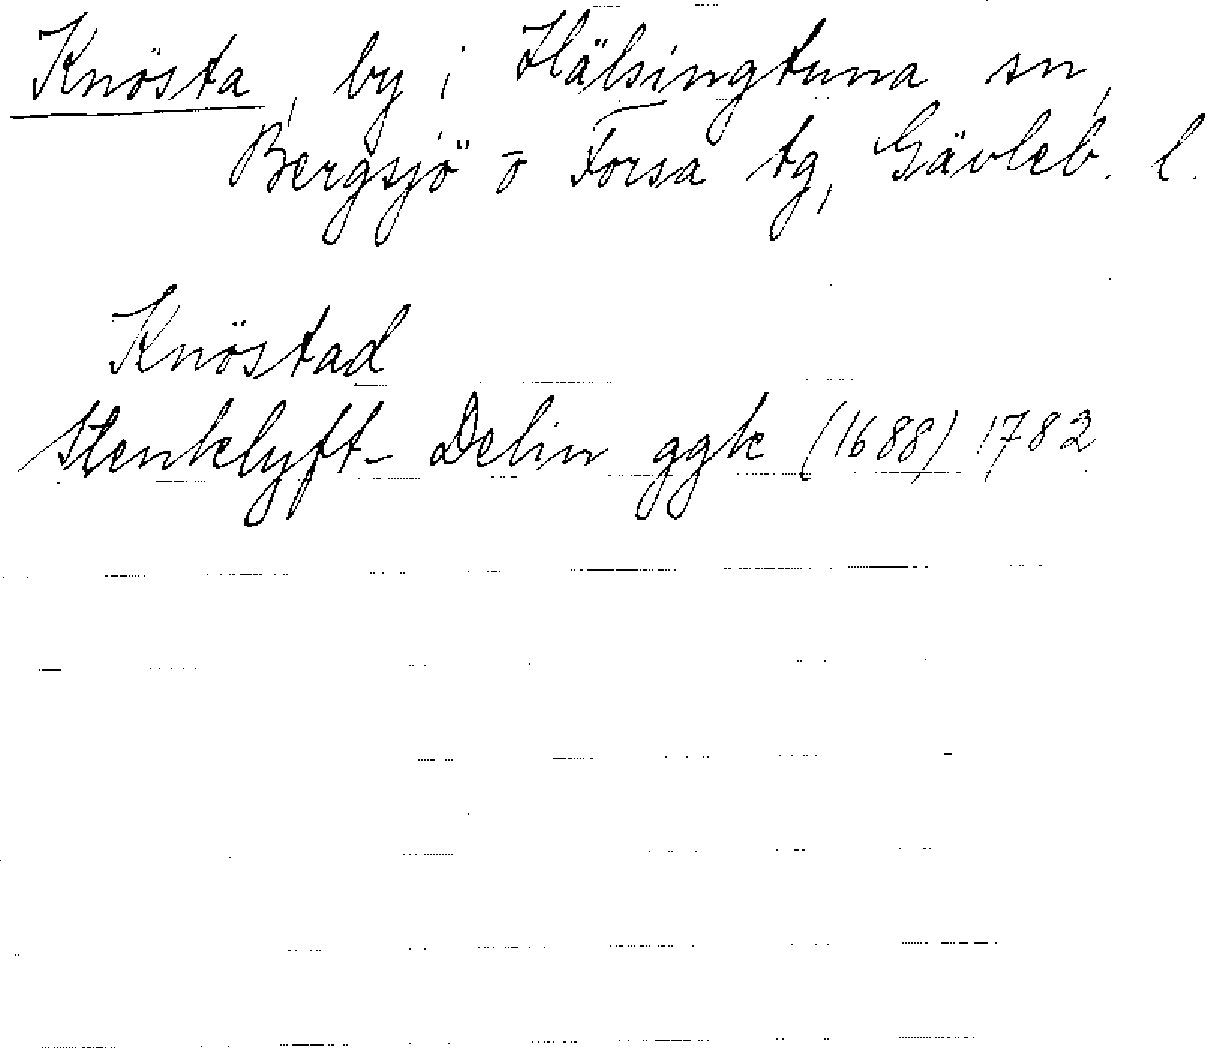 Knösta, by i Hälsingtuna sn,
Bergsjö o Forsa tg, Gävleb. l.
Knöstad
Stenklyft- Delin ggk (1688) 1782